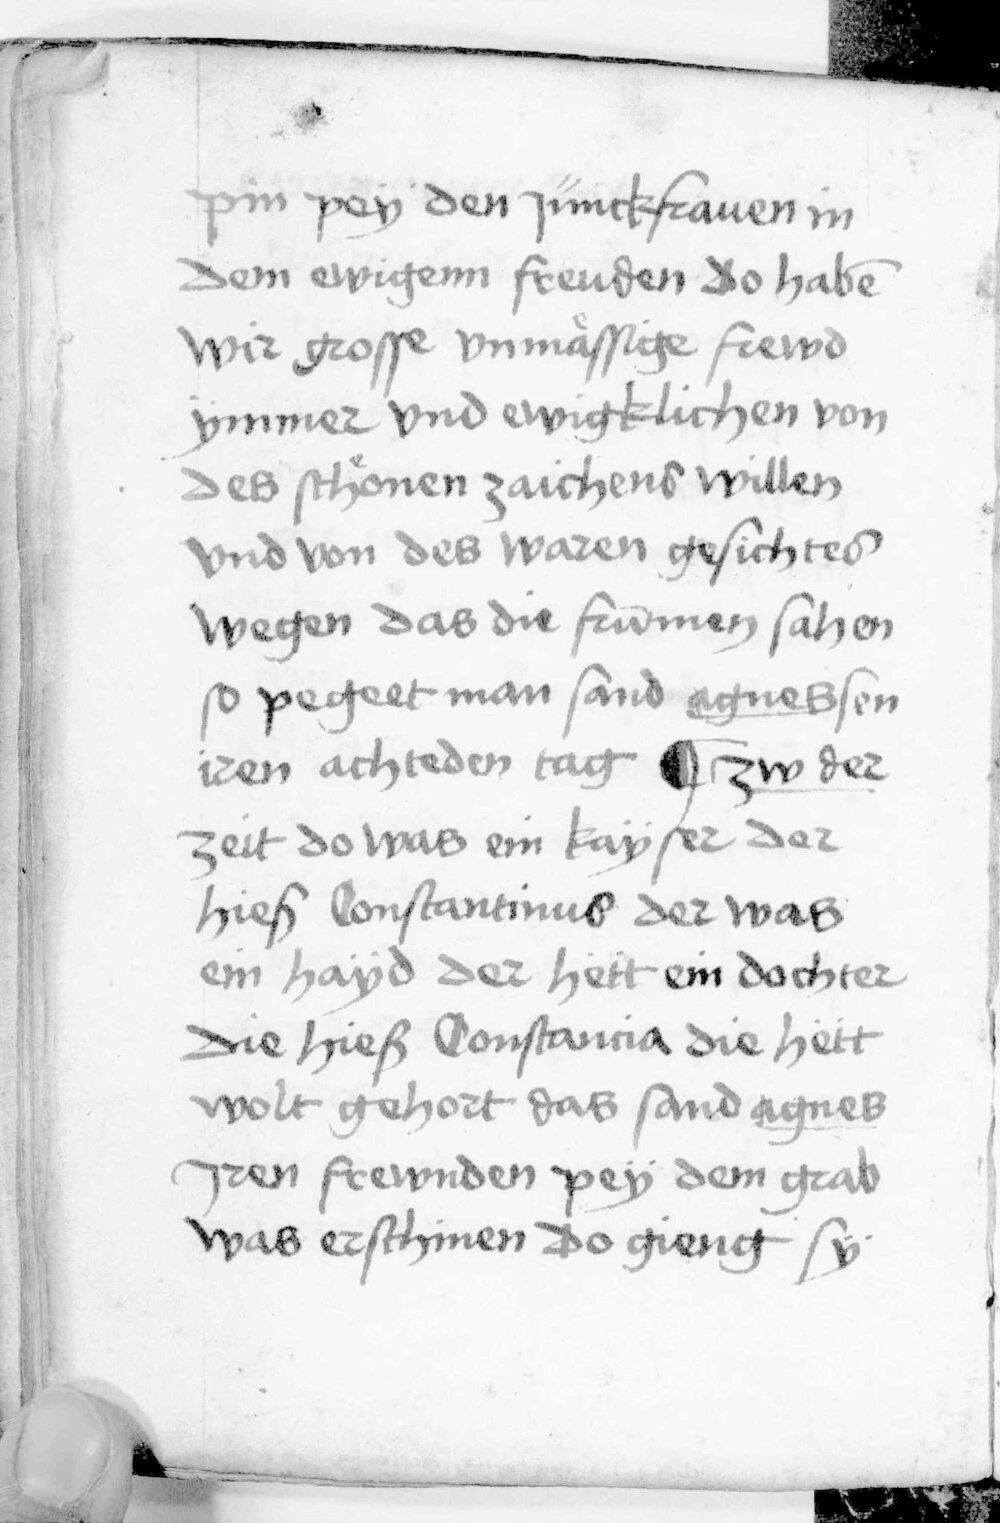 pin pey den Junckfrauen in
dem ewigenn freuden Do habē
wir grosse vnmaͤssige frewd
ÿmmer vnd ewigklichen von
des schoͤnen zaichens willen
vnd von des waren gesichtes
wegen das die frūmen sahen
so pegeet man sand agnessen
iren achteden tag ¶ zw der
zeit do was ein kaÿser der
hieß Constantinus der was
ein haÿd der hett ein dochter
die hieß Constancia die hett
wolt gehort das sand agnes
Jren frewnden peÿ dem grab
was erschinen Do gieng sÿ